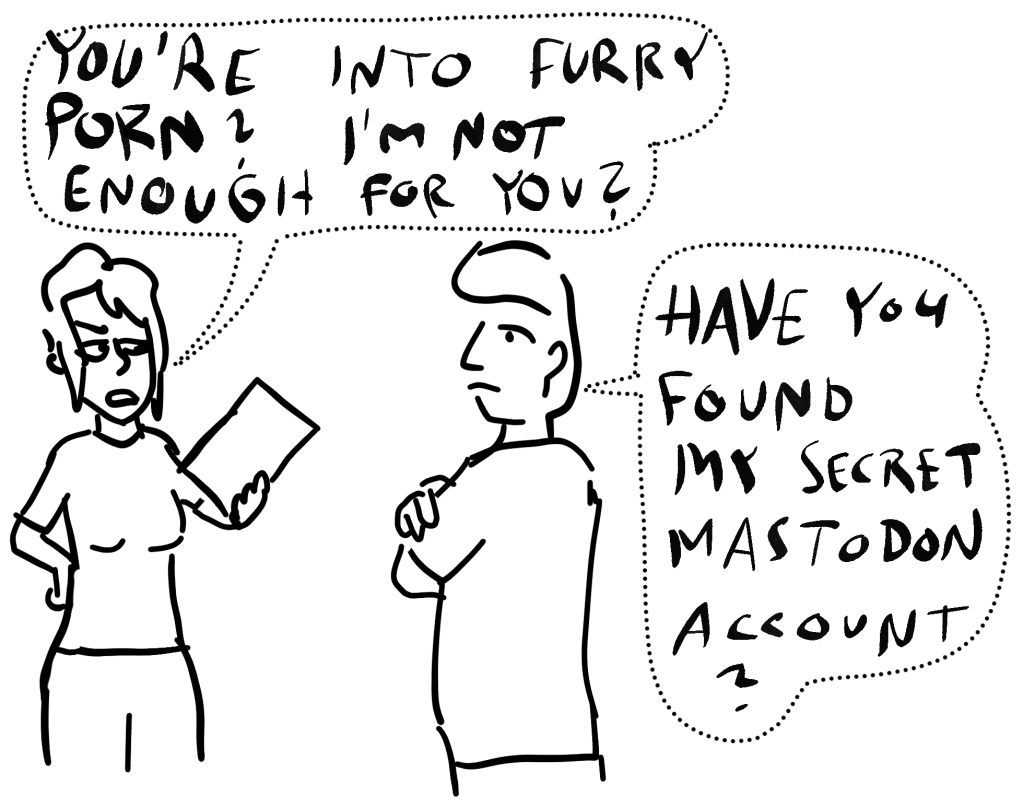 YOU'RE INTO FURRY
PORN? I'M NOT
ENOUGH FOR YOU?
HAVE YOU
FOUND
MY SECRET
MASTODON
ACCOUNT
?